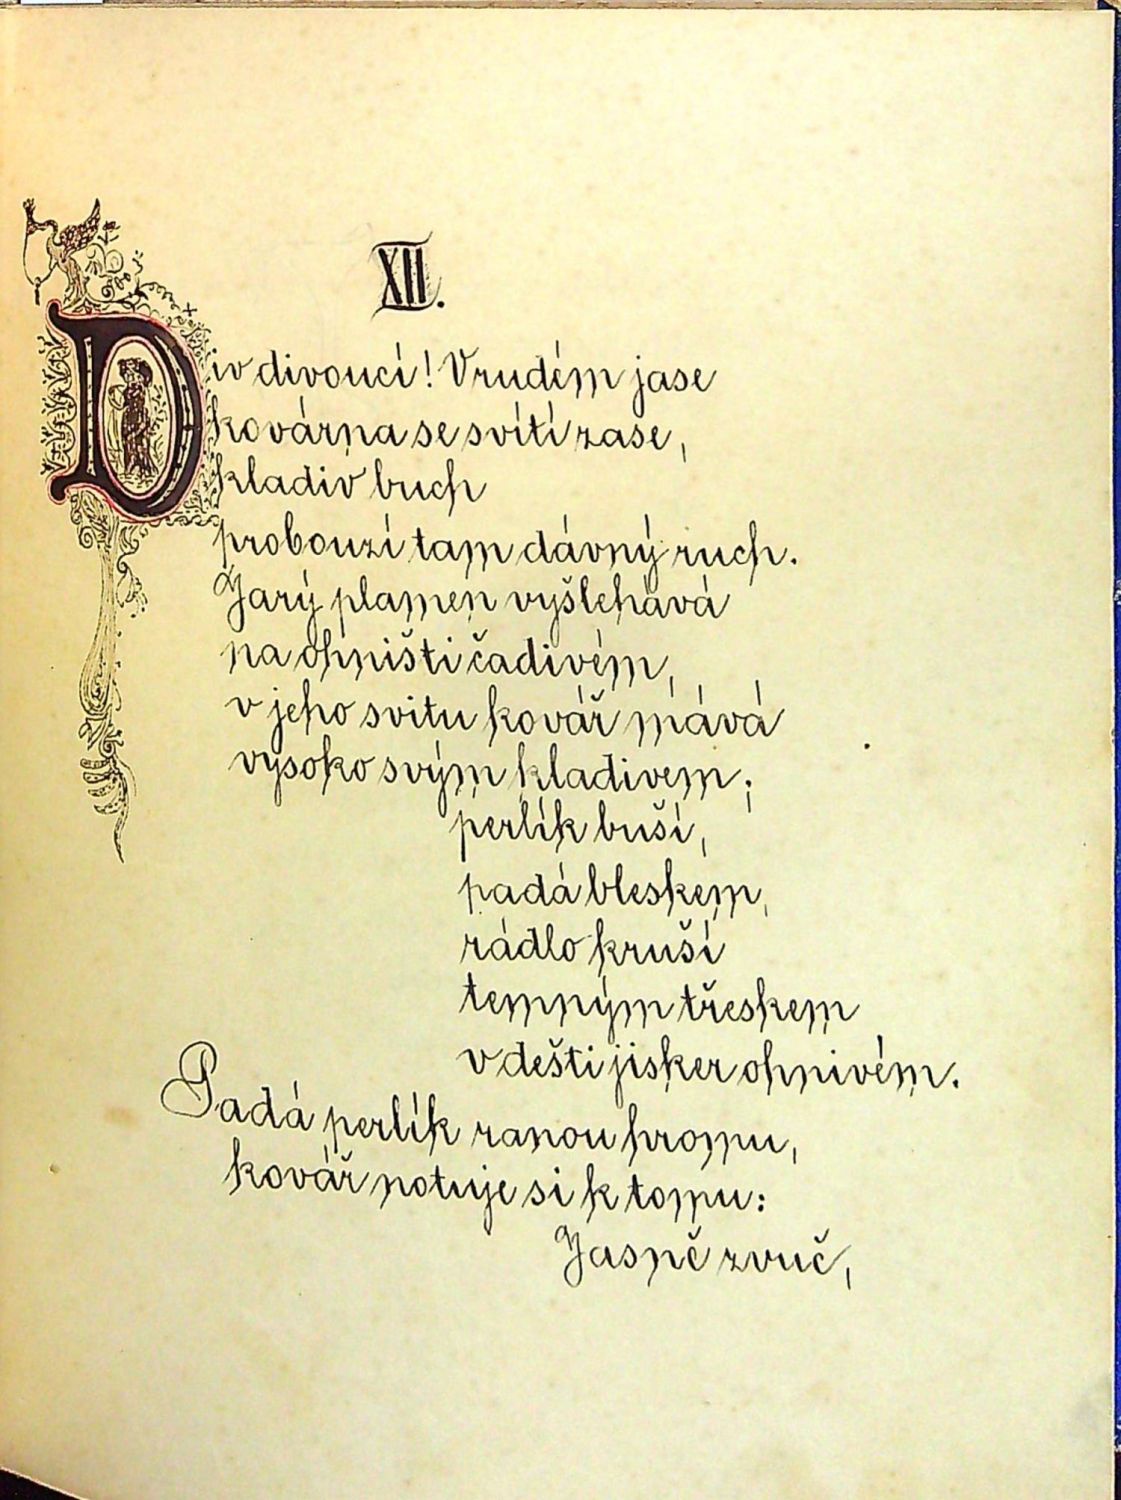 XII.
Div divoucí! V rudém jase
kovárna se svítí zase,
kladiv buch
probouzí tam dávný ruch.
Jarý plamen vyšlehává
na ohništi čadivém,
v jeho svitu kovář mává
vysoko svým kladivem;
perlík buší,
padá bleskem,
rádlo kruší
temným třeskem
v dešti jisker ohnivém.
Padá perlík ranou hromu,
kovář notuje si k tomu:
Jasně zvuč,